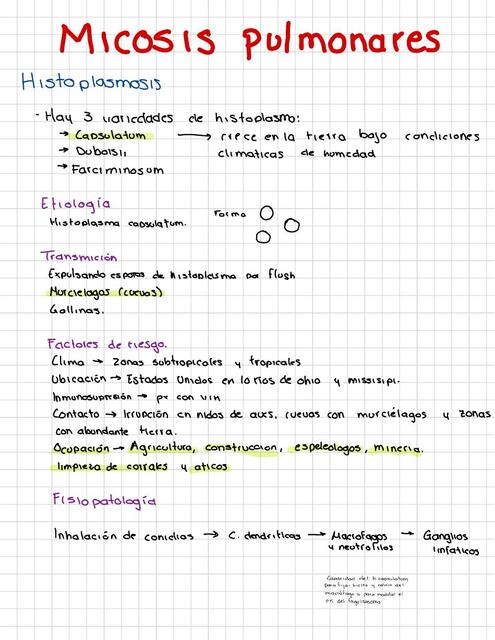 Micosis pulmonares
Histoplasmosis
· Hay 3 variedades de histoplasmo:
→ Capsulatum → crece en la tierra bajo condiciones
→ Duboisii climaticas de humedad
→ Farciminosum
Etiología
Histoplasma capsulatum. Forma
Transmición
Expulsando esporas de histoplasma por flush
Murciélagos (cuevas)
Gallinas.
Factores de riesgo.
Clima → zonas subtropicales y tropicales
Ubicación → Estados Unidos en lo rios de ohio y missisipi.
Inmunosupresión → px con VIH
Contacto → Irrupción en nidos de aves, cuevas con murciélagos y zonas
con abundante tierra.
Ocupación → Agricultura, construccion, espeleologos, mineria.
limpieza de corrales y aticos
Fisiopatología
Inhalación de conidios → C. dendríticas → Macrofagos → Ganglios
y neutrofilos linfaticos
Capacidad del h capsulatum
para fijar hierro y calcio del
macrófago y para modular el
pH del fagolisosoma